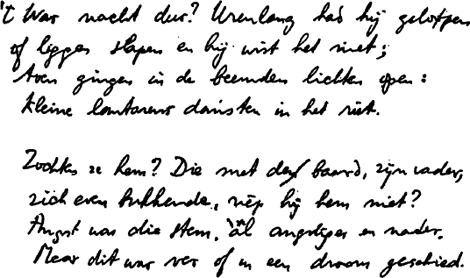 't War nacht deur? Urenlang had hij geloopen
of liggen slapen en hij wist het niet;
toen gingen in de beemden lichten open:
kleine lantarens dansten in het riet.

Zochten ze hem? Die met den baard, zijn vader,
zich even bukkende, riep hij hem niet?
Angst was die stem, al angstiger en nader.
Maar dit was ver of in een droom geschied.